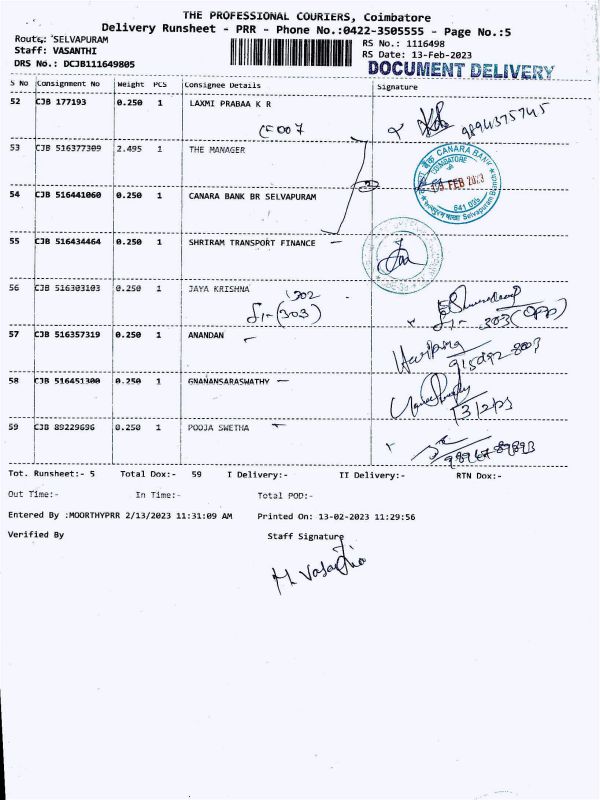 THE PROFESSIONAL COURIERS, Coimbatore
Delivery Runsheet - PRR - Phone No.:0422-3505555 - Page No.:5
Route: SELVAPURAM
Staff: VASANTHI
DRS No.: DCJB111649805
RS No.: 1116498
RS Date: 13-Feb-2023
DOCUMENT DELIVERY
S No Consignment No Weight PCS Consignee Details Signature
52 CJB 177193 0.250 1 LAXMI PRABAA K R
CF007
9894375745
53 CJB 516377309 2.495 1 THE MANAGER
CANARA BANK
COIMBATORE
FEB 2023
641 039
Selvapuram Branch
54 CJB 516441060 0.250 1 CANARA BANK BR SELVAPURAM
55 CJB 516434464 0.250 1 SHRIRAM TRANSPORT FINANCE
56 CJB 516303103 0.250 1 JAYA KRISHNA
302
(303)
303(OPP)
57 CJB 516357319 0.250 1 ANANDAN
58 CJB 516451300 0.250 1 GNANANSARASWATHY
59 CJB 89229696 0.250 1 POOJA SWETHA
Tot. Runsheet:- 5 Total Dox:- 59 I Delivery:- II Delivery:- RTN Dox:-
Out Time:- In Time:- Total POD:-
Entered By :MOORTHYPRR 2/13/2023 11:31:09 AM Printed On: 13-02-2023 11:29:56
Verified By Staff Signature
M. Vasantha